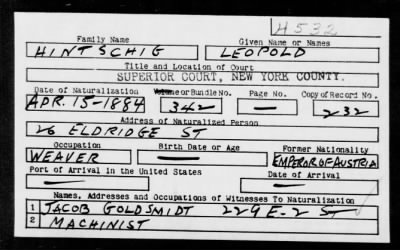 H532
Family Name Given Name or Names
HINTSCHIG LEOPOLD
Title and Location of Court
SUPERIOR COURT, NEW YORK COUNTY.
Date of Naturalization Volume or Bundle No. Page No. Copy of Record No.
APR. 15-1884 342 — 232
Address of Naturalized Person
26 ELDRIDGE ST
Occupation Birth Date or Age Former Nationality
WEAVER — EMPEROR OF AUSTRIA
Port of Arrival in the United States Date of Arrival
— —
Names, Addresses and Occupations of Witnesses To Naturalization
1 JACOB GOLDSMIDT 229 E-2 ST
2 MACHINIST